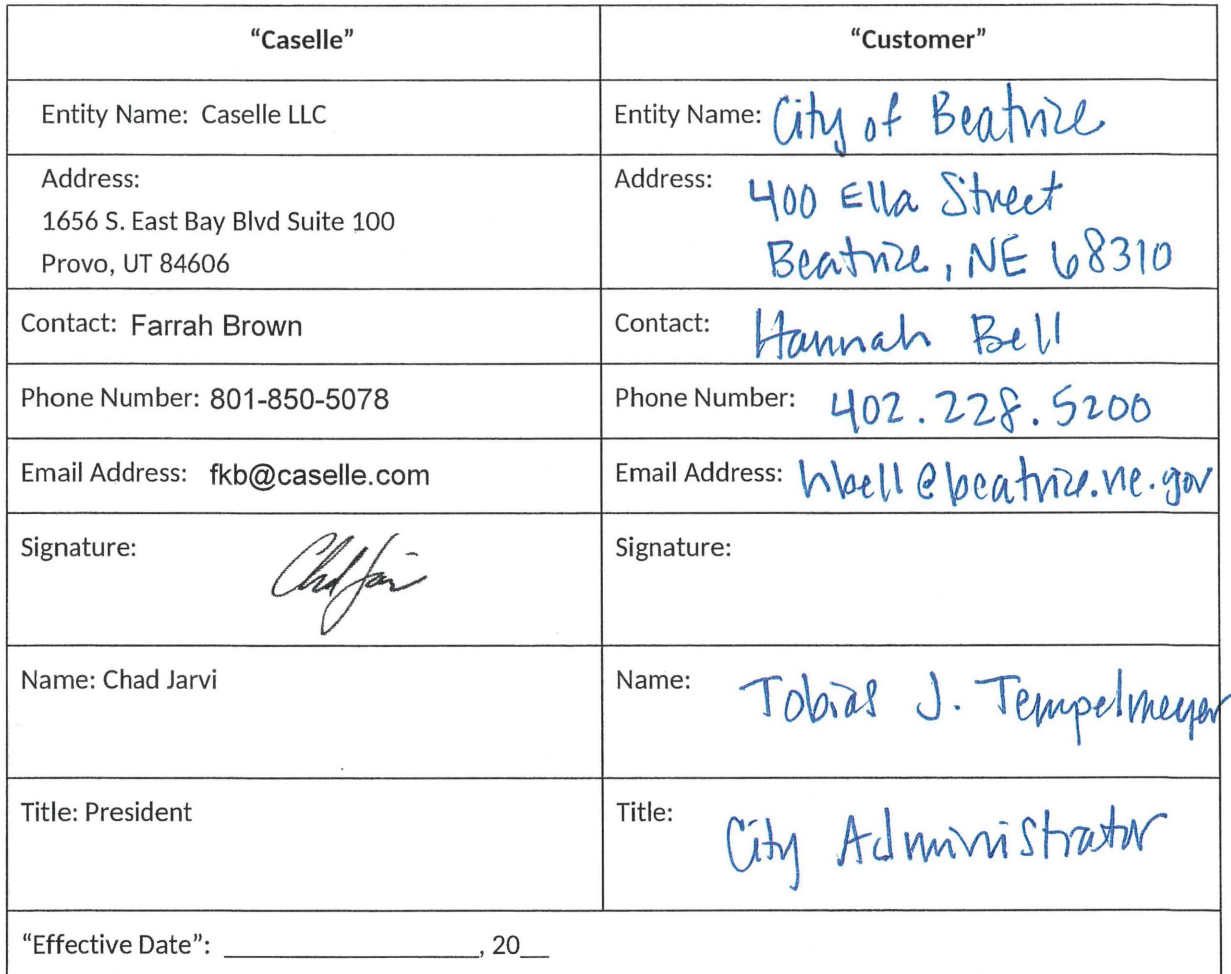 “Caselle”
“Customer”
Entity Name: Caselle LLC
Entity Name: City of Beatrice
Address:
1656 S. East Bay Blvd Suite 100
Provo, UT 84606
Address: 400 Ella Street
Beatrice, NE 68310
Contact: Farrah Brown
Contact: Hannah Bell
Phone Number: 801-850-5078
Phone Number: 402.228.5200
Email Address: fkb@caselle.com
Email Address: hbell@beatrice.ne.gov
Signature: Chad Jarvi
Signature:
Name: Chad Jarvi
Name: Tobias J. Tempelmeyer
Title: President
Title: City Administrator
“Effective Date”: ____________________, 20__